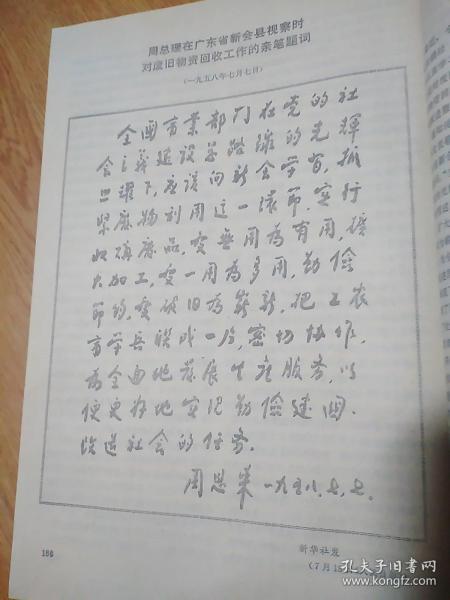 周总理在广东省新会县视察时
对废旧物资回收工作的亲笔题词
(一九五八年七月七日)
全国商業部门在党的社
会主義建设总路線的光輝
照耀下，应该向新会学習，抓
紧廢物利用这一環節，实行
收購廢品，变無用為有用，擴
大加工，变一用為多用，勤俭
節约，变破旧為嶄新，把工农
商学兵联成一片，密切协作，
為全面地發展生產服务，以
便更好地实现勤俭建国，
改造社会的任务。
周恩来 一九五八、七、七、
新华社发
(7月1
186
孔夫子旧书网
www.kongfz.com